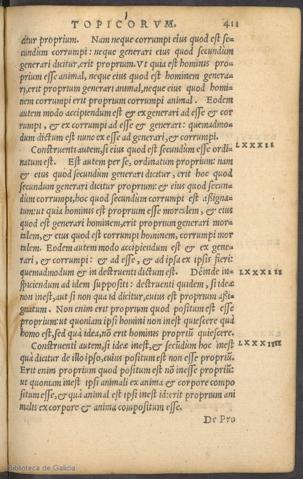 TOPICORVM. 411
citur proprium. Nam neque corrumpi eius quod est se-
cundùm corrumpi: neque generari eius quod secundùm
generari dicitur, erit proprum. Vt quia est hominis pro-
prium esse animal, neque eius quod est hominem genera-
ri, erit proprum generari animal, neque eius quod homi-
nem corrumpi erit proprum corrumpi animal. Eodem
autem modo accipiendum est & ex generari ad esse & cor
rumpi, & ex corrumpi ad esse & generari: quemadmo-
dum dictum est nunc ex esse ad generari, & corrumpi.
Construenti autem, si eius quod est secundùm esse ordi- LXXXII
natum est. Est autem per se, ordinatum proprum: nam
& eius quod secundùm generari dicitur, erit hoc quod
secundùm generari dicitur proprum: & eius quod secun-
dùm corrumpi, hoc quod secundùm corrumpi est assigna-
tum: ut quia hominis est proprum esse mortalem, & eius
quod est generari hominem, erit proprum generari mor-
talem, & eius quod est corrumpi hominem, corrumpi mor
talem. Eodem autem modo accipiendum est & ex gene-
rari, & corrumpi: & ad esse, & ad ipsa ex ipsis fieri:
quemadmodum & in destruenti dictum est. Deinde in- LXXXIII
spiciendum ad idem suppositi: destruenti quidem, si idea
non inest, aut si non qua id dicitur, cuius est proprum assi-
gnatum. Non enim erit proprum quod positum est esse
proprum: ut quoniam ipsi homini non inest quiescere quà
homo est, sed quà idea, nō erit hominis propriū quiescere.
Construenti autem, si idea inest, & secūdum hoc inest LXXXIIII
quà dicitur de illo ipso, cuius positum est non esse propriū.
Erit enim proprium quod positum est nō inesse propriū:
ut quoniam inest ipsi animali ex anima & corpore compo
situm esse, & quà animal est ipsi inest id: erit proprum ani
malis ex corpore & anima compositum esse.
De Pro
Biblioteca de Galicia